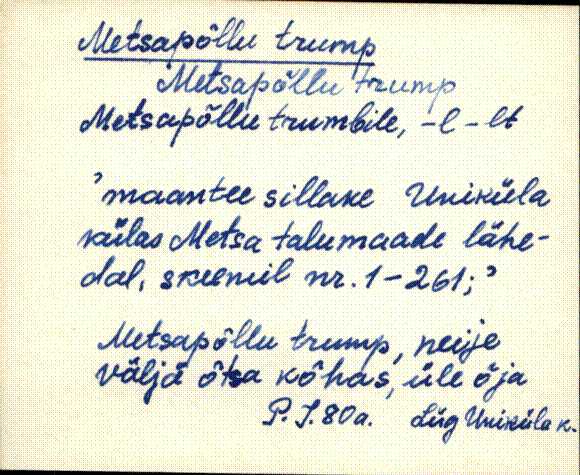 Metsapõllu trump
Metsapõllu trump
Metsapõllu trumbile, -l -lt
’maantee sillake Uniküla
külas Metsa talumaade lähe-
dal, skeemil nr. 1-261;’
Metsapõllu trump, neije
väljä õtsa kõhas, üle õja
P. J. 80a. Lüg Uniküla k.